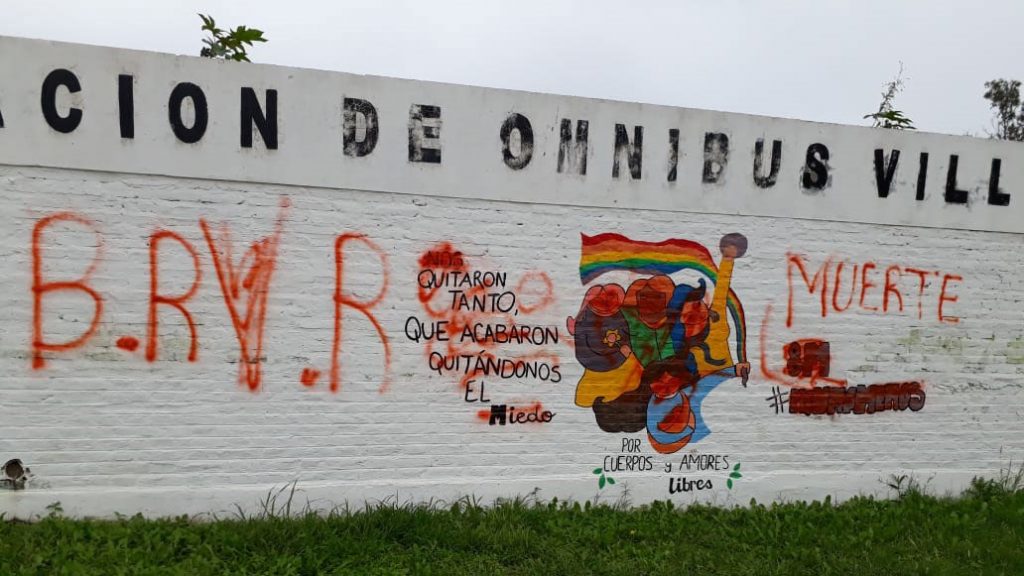 ACION DE OMNIBUS VILL
B.RV.R
NOS
QUITARON
TANTO,
QUE ACABARON
QUITÁNDONOS
EL
Miedo
POR
CUERPOS y AMORES
libres
MUERTE